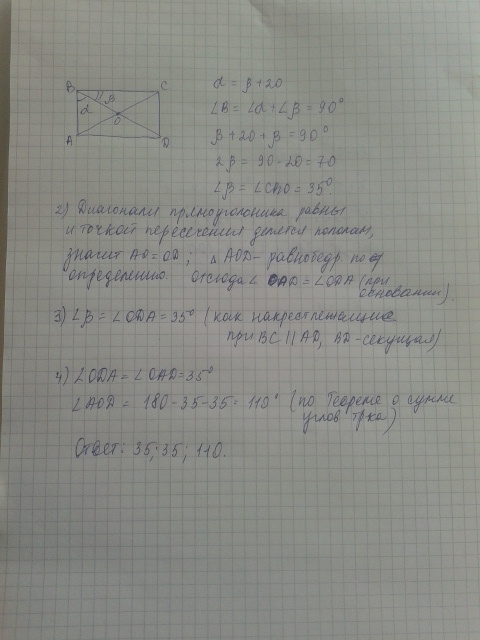 B C
α β
O
A D
α = β + 20
∠B = ∠α + ∠β = 90°
β + 20 + β = 90°
2β = 90 - 20 = 70
∠β = ∠CBO = 35°
2) Диагонали прямоугольника равны
и точкой пересечения делятся пополам,
значит AO = OD ; △ AOD - равнобедр. по
определению. отсюда ∠ OAD = ∠ODA (при
основании)
3) ∠β = ∠ODA = 35° (как накрестлежащие
при BC || AD, BD - секущая)
4) ∠ODA = ∠OAD = 35°
∠AOD = 180 - 35 - 35 = 110° (по Теореме о сумме
углов тр-ка)
Ответ: 35; 35; 110.